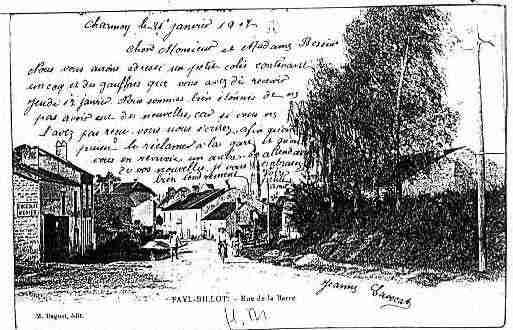 Charmoy le 21 janvier 1917
Chers Monsieur et Madame Bessier
Nous vous avons adresser un petit colis contenant
un coq et des gauffres que vous avez dû recevoir
jeudi 12 janvier Nous sommes bien étonnés de ne
pas avoir eut des nouvelles, car si vous ne
l'avez pas reçu vous nous écrirez, afin qu'on
puisse le réclamer à la gare, et qu'on
vous en renvoie un autre. En attendant
de vos nouvelles, je vous embrasse
bien tendrement
EPICERIE
MERCERIE
FAYL-BILLOT. - Rue de la Barre
M. Huguet, édit.
Jeanne